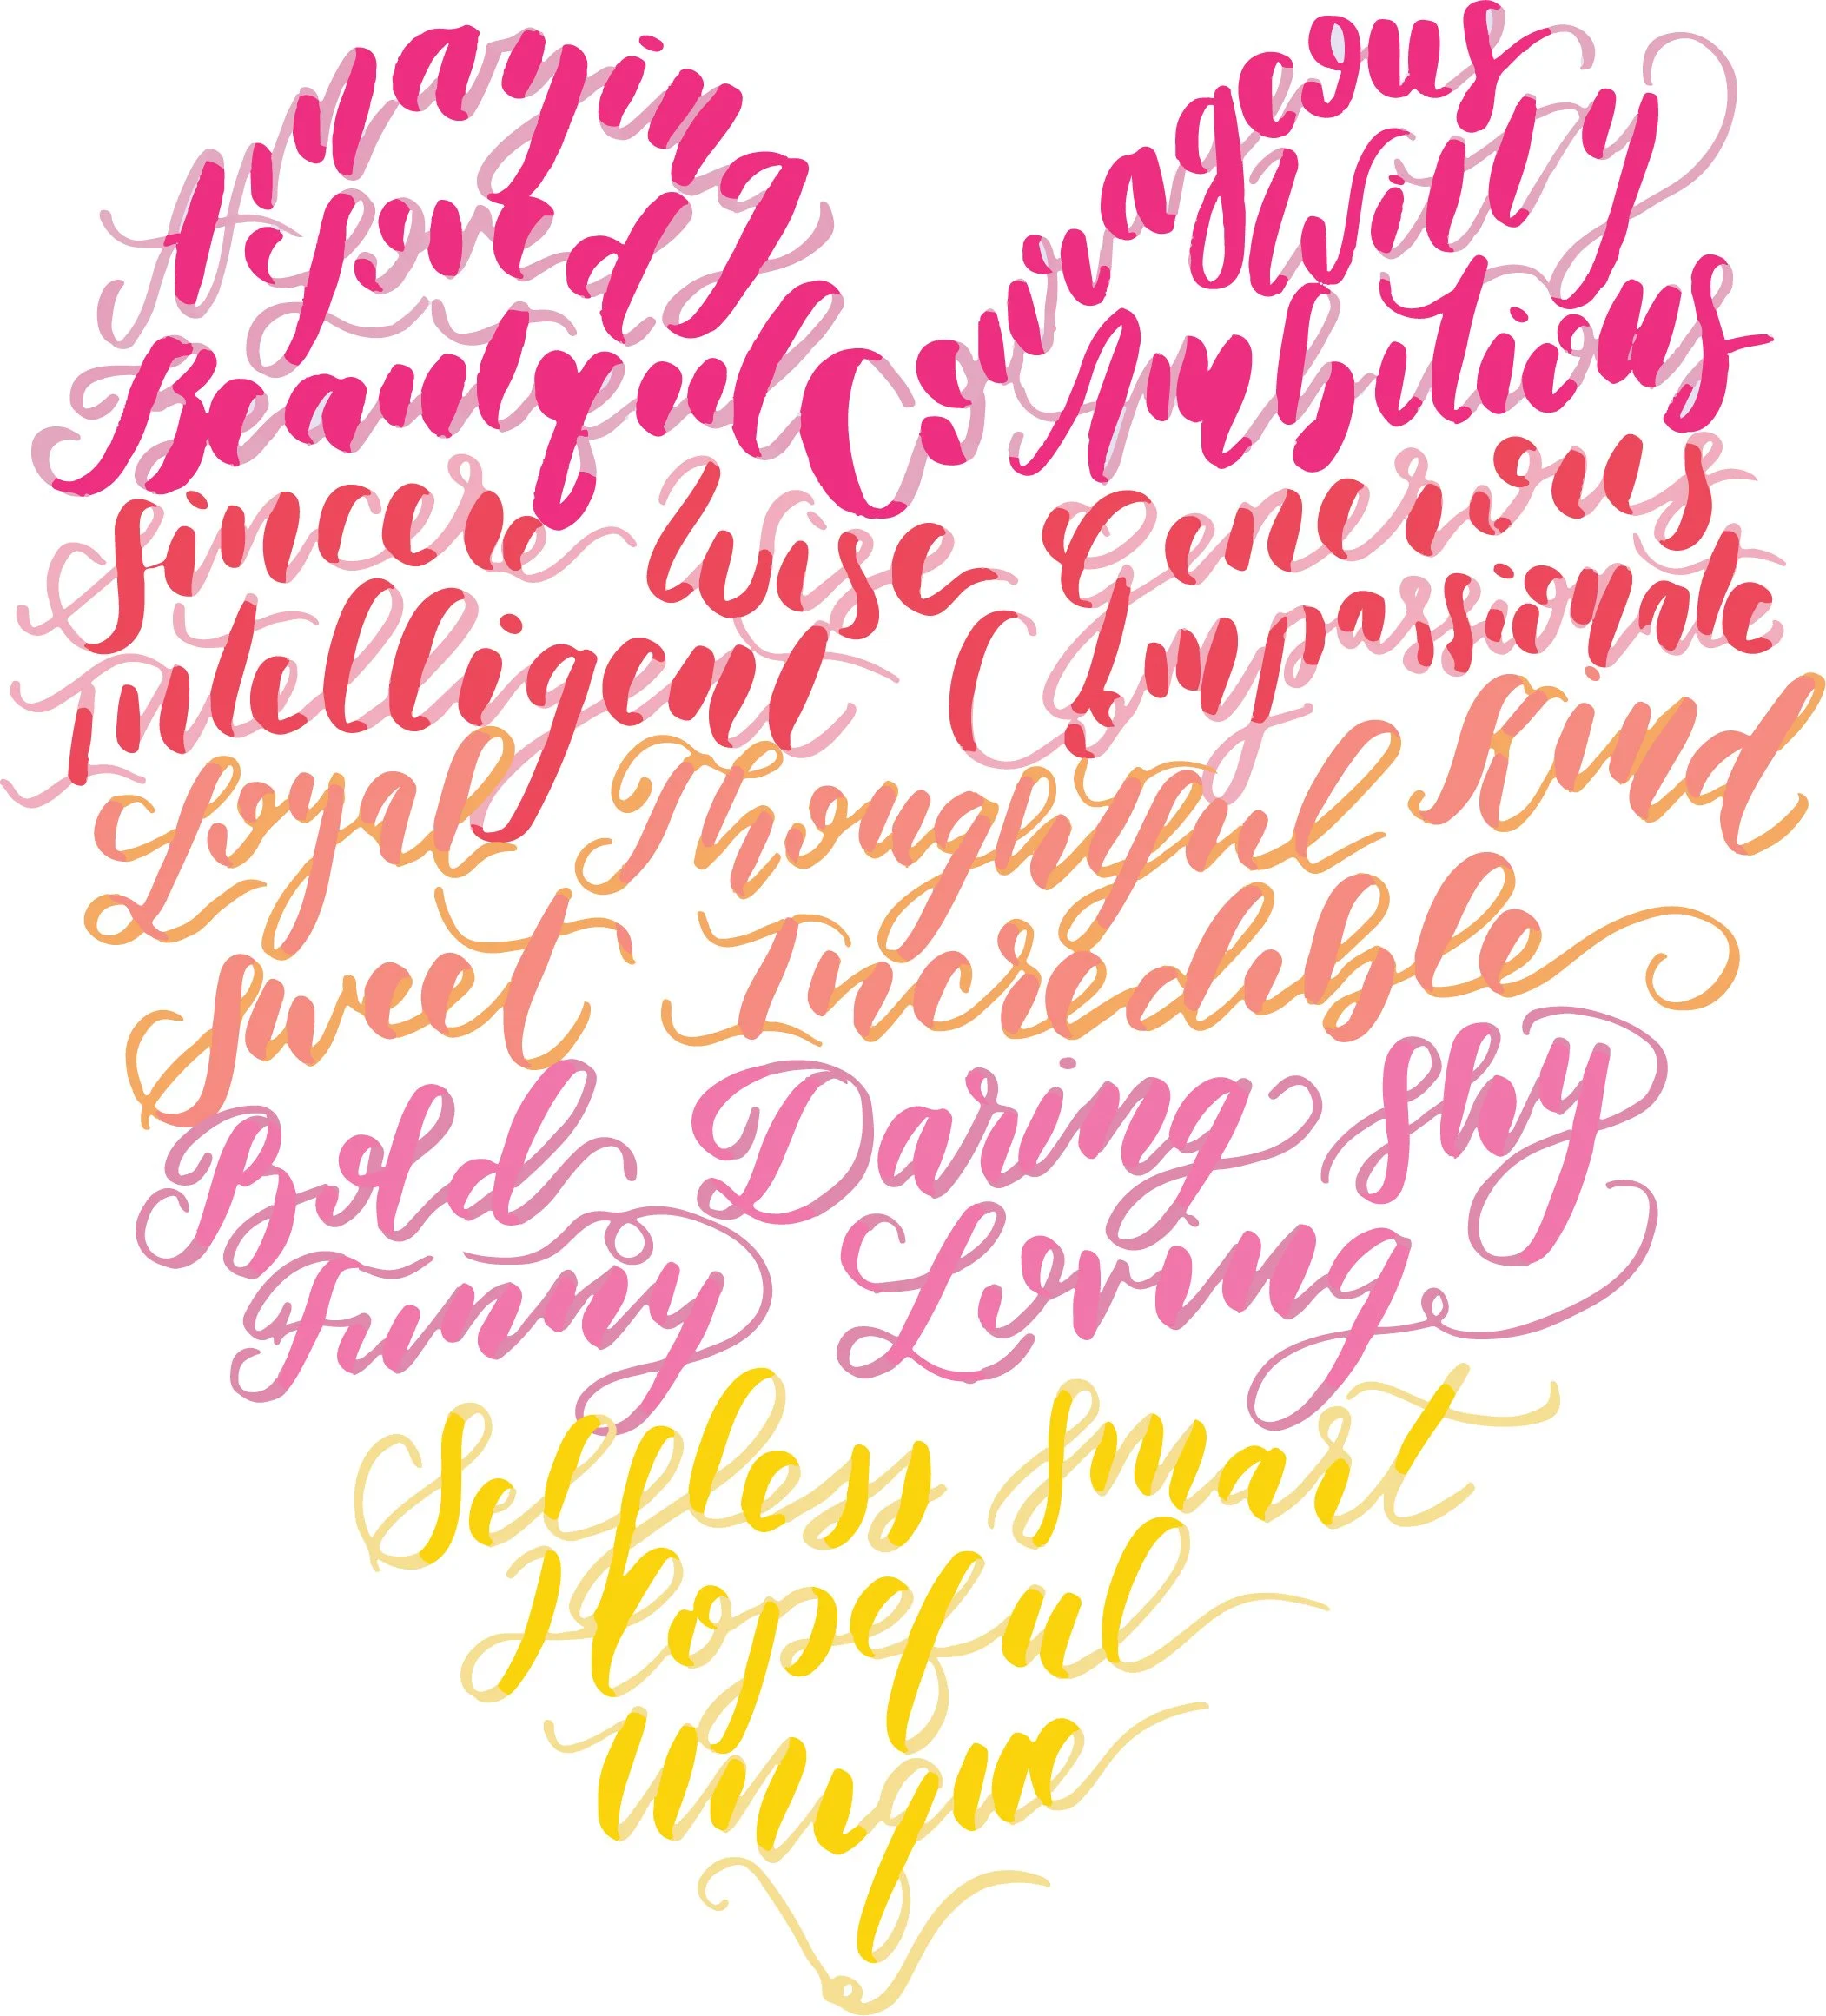 Amazing Courageous
Witty
Beautiful Ambitious
Sincere Wise Generous
Intelligent Compassionate
Loyal Thoughtful Kind
Sweet Incredible
Bold Daring Shy
Funny Loving
Selfless Smart
Hopeful
Unique